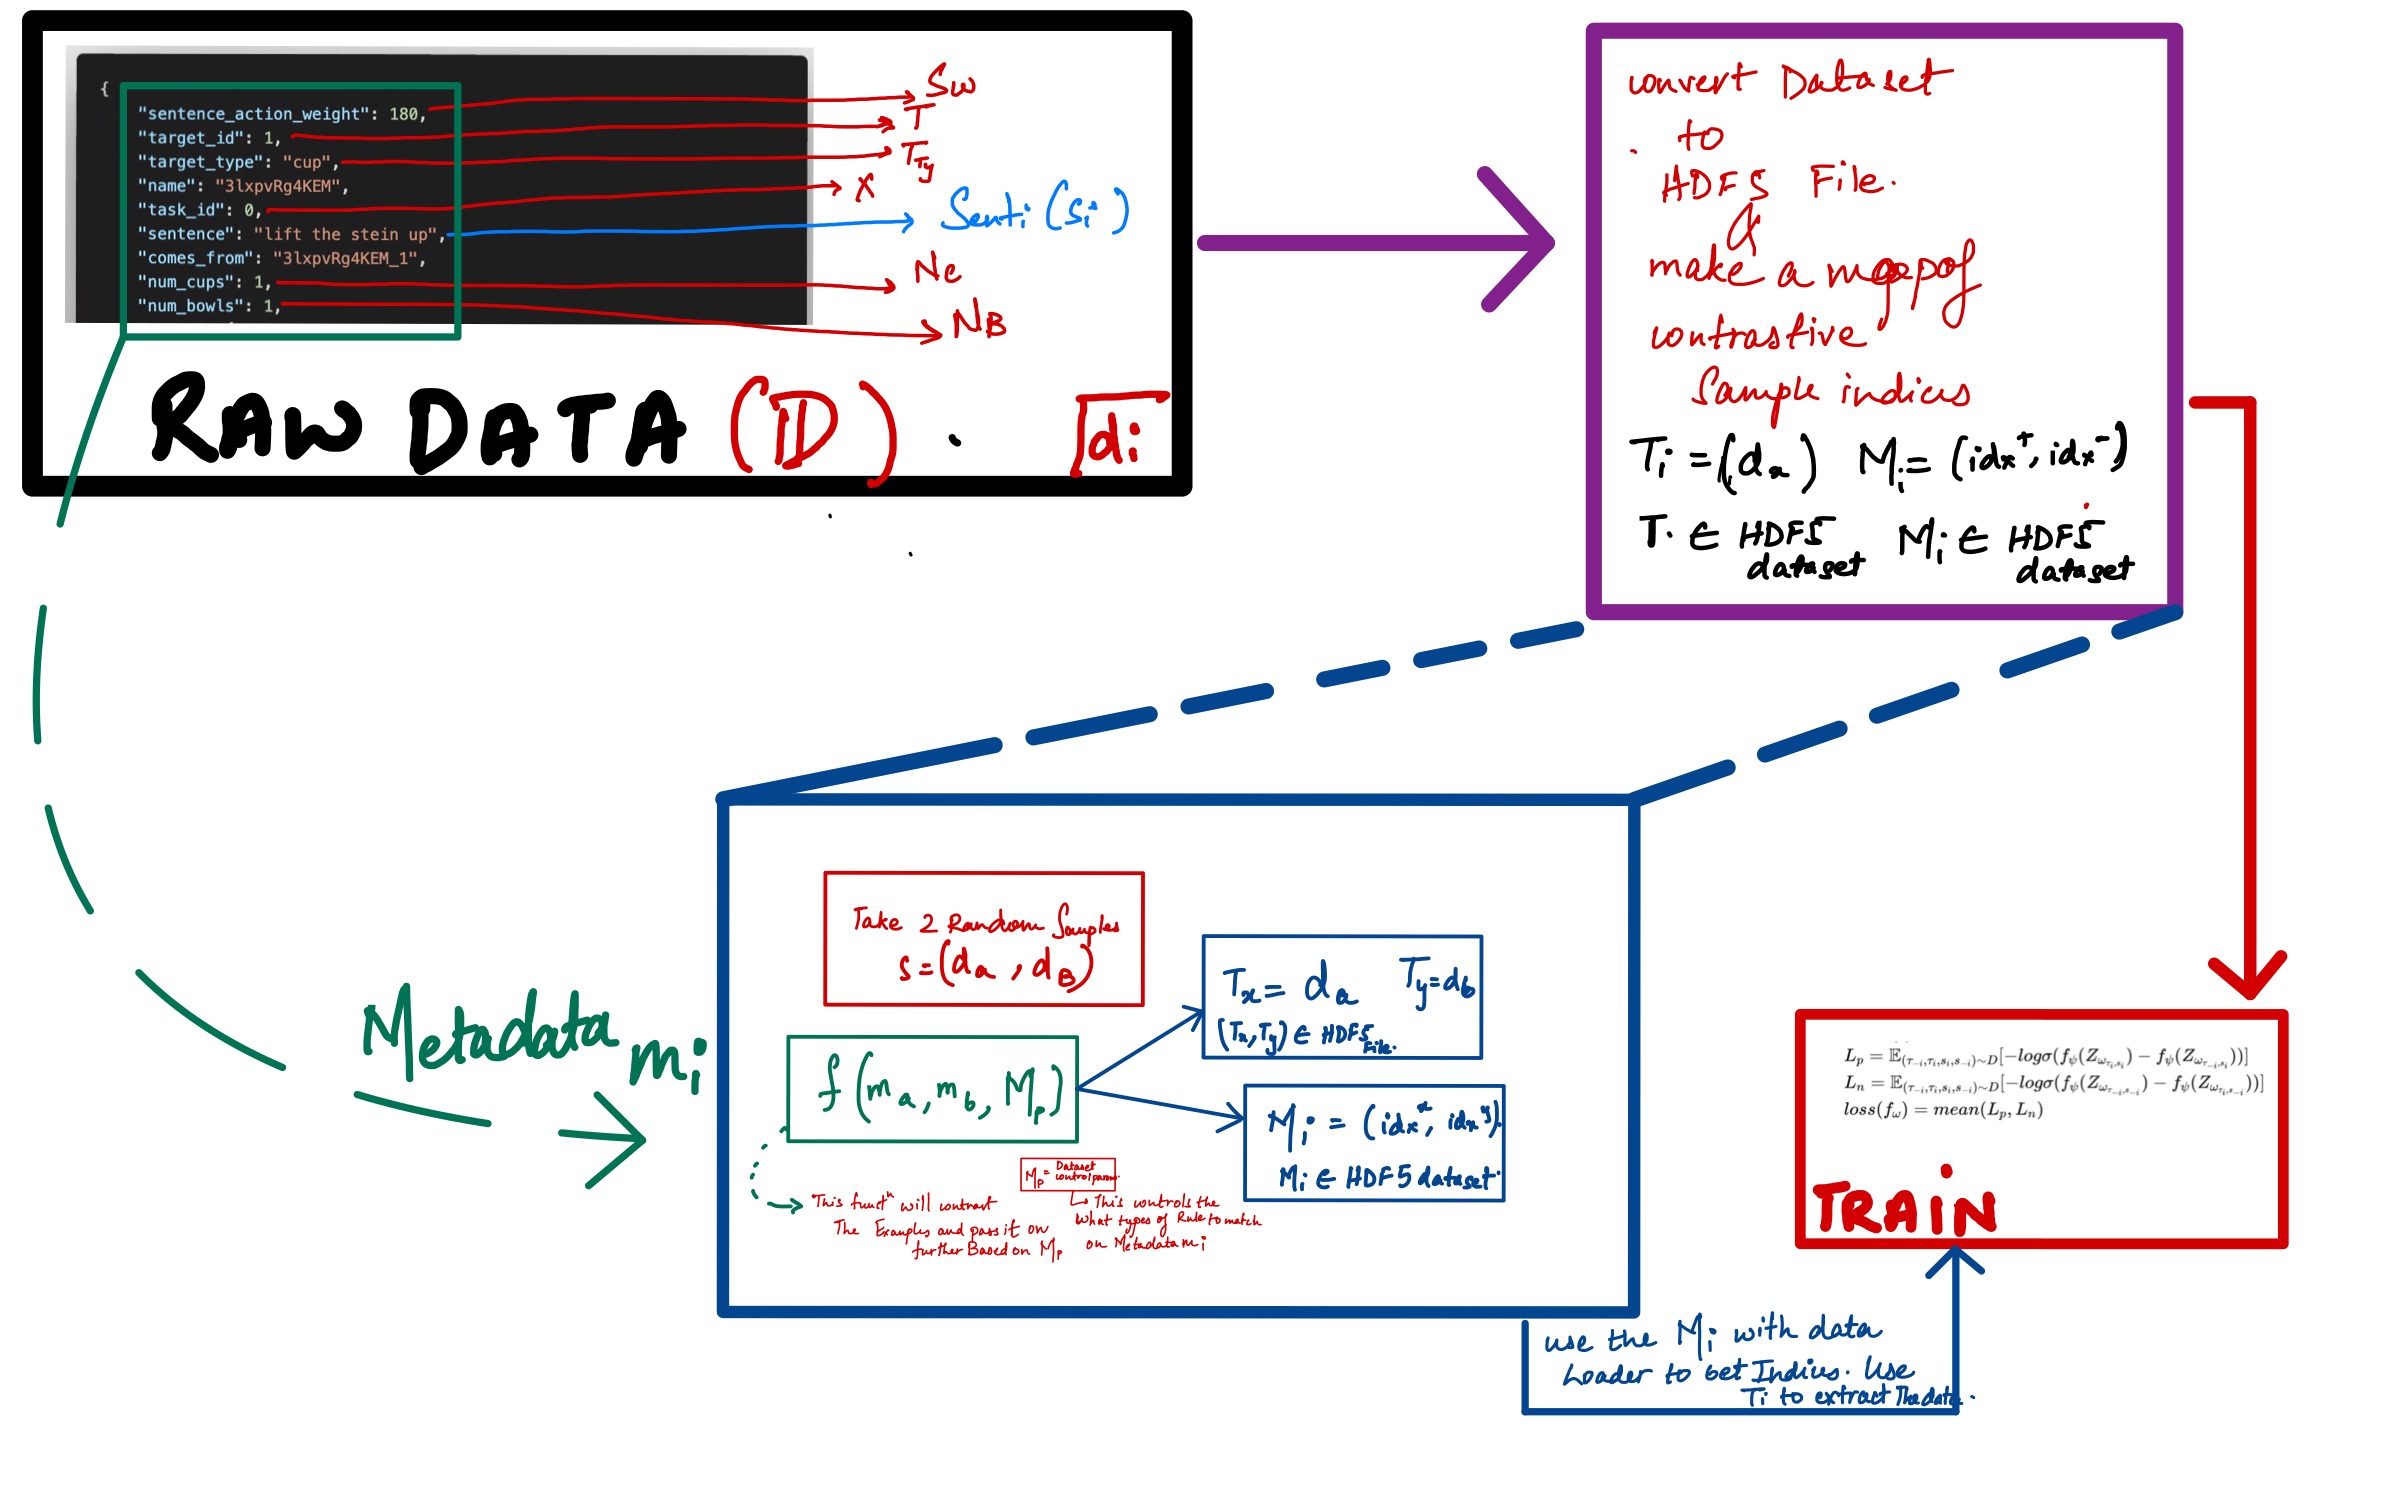 {
"sentence_action_weight": 180,
"target_id": 1,
"target_type": "cup",
"name": "3lxpvRg4KEM",
"task_id": 0,
"sentence": "lift the stein up",
"comes_from": "3lxpvRg4KEM_1",
"num_cups": 1,
"num_bowls": 1,
Sw
T
T_Ty
X
Senti (Si)
Nc
NB
RAW DATA (D) . di
convert Dataset
to
HDF5 File.
&
make a map of
contrastive
Sample indices
Ti = (da) Mi = (idx⁺, idx⁻)
T. ∈ HDF5 dataset Mi ∈ HDF5 dataset
Metadata mi
Take 2 Random Samples
S = (da, dB)
f (ma, mb, Mp)
Tx = da Ty = db
(Tx, Ty) ∈ HDF5 File.
Mi = (idxˣ, idxʸ).
Mi ∈ HDF5 dataset.
Mp = Dataset control param.
This functⁿ will contrast
The Examples and pass it on
further Based on Mp
This controls the
what types of Rule to match
on Metadata mi
L_p = 𝔼_(τ_−i,τ_i,s_i,s_−i)∼D[−logσ(f_ψ(Z_ω_τ_i,s_i) − f_ψ(Z_ω_τ_−i,s_i))]
L_n = 𝔼_(τ_−i,τ_i,s_i,s_−i)∼D[−logσ(f_ψ(Z_ω_τ_−i,s_−i) − f_ψ(Z_ω_τ_i,s_−i))]
loss(f_ω) = mean(L_p, L_n)
TRAiN
use the Mi with data
Loader to get Indices. Use
Ti to extract The data.